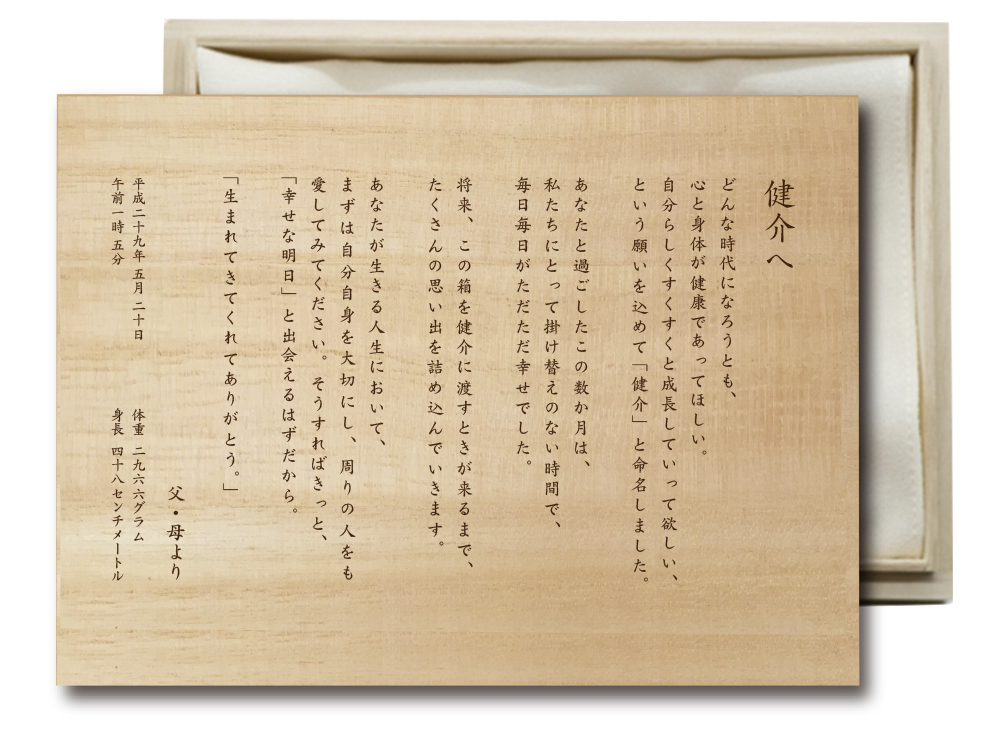 健介へ
どんな時代になろうとも、
心と身体が健康であってほしい。
自分らしくすくすくと成長していって欲しい、
という願いを込めて「健介」と命名しました。
あなたと過ごしたこの数か月は、
私たちにとって掛け替えのない時間で、
毎日毎日がただただ幸せでした。
将来、この箱を健介に渡すときが来るまで、
たくさんの思い出を詰め込んでいきます。
あなたが生きる人生において、
まずは自分自身を大切にし、周りの人をも
愛してみてください。そうすればきっと、
「幸せな明日」と出会えるはずだから。
「生まれてきてくれてありがとう。」
父・母より
平成二十九年五月二十日 体重 二九六六グラム
午前一時五分 身長 四十八センチメートル